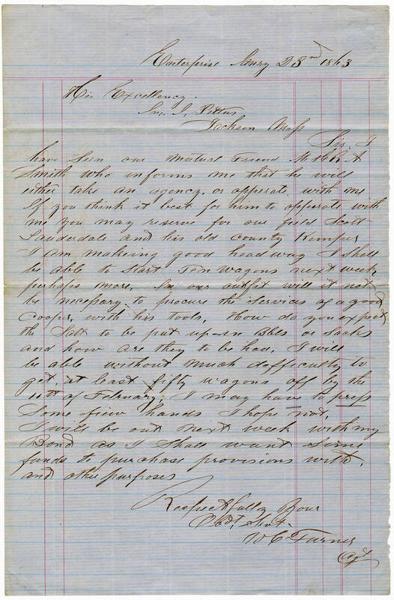 Enterprise Jany 23rd 1863
His Excellency
Jno. J. Pettus
Jackson Miss
Sir I
have seen our mutual friend
Smith who informs me that he will
either take an agency or opperate with me
If you think it best for him to opperate with
me you may reserve for our field Scott
Lauderdale and his old County Kemper
I am makeing good headway I shall
be able to start Ten wagons next week
perhaps more. In our outfit will it not
be necessary to procure the services of a good
Cooper, with his tools, How do you expect
the Salt to be put up in Bbls or sacks
and how are they to be had. I will
be able without much difficulty to
get at least fifty wagons off by the
of February, I may have to press
Some few hands I hope not,
I will be out next week with my
Bond as I shall want some
funds to purchase provisions with,
and other purposes
Respectfully Your
Obdt Servt
W C Turner
Agt